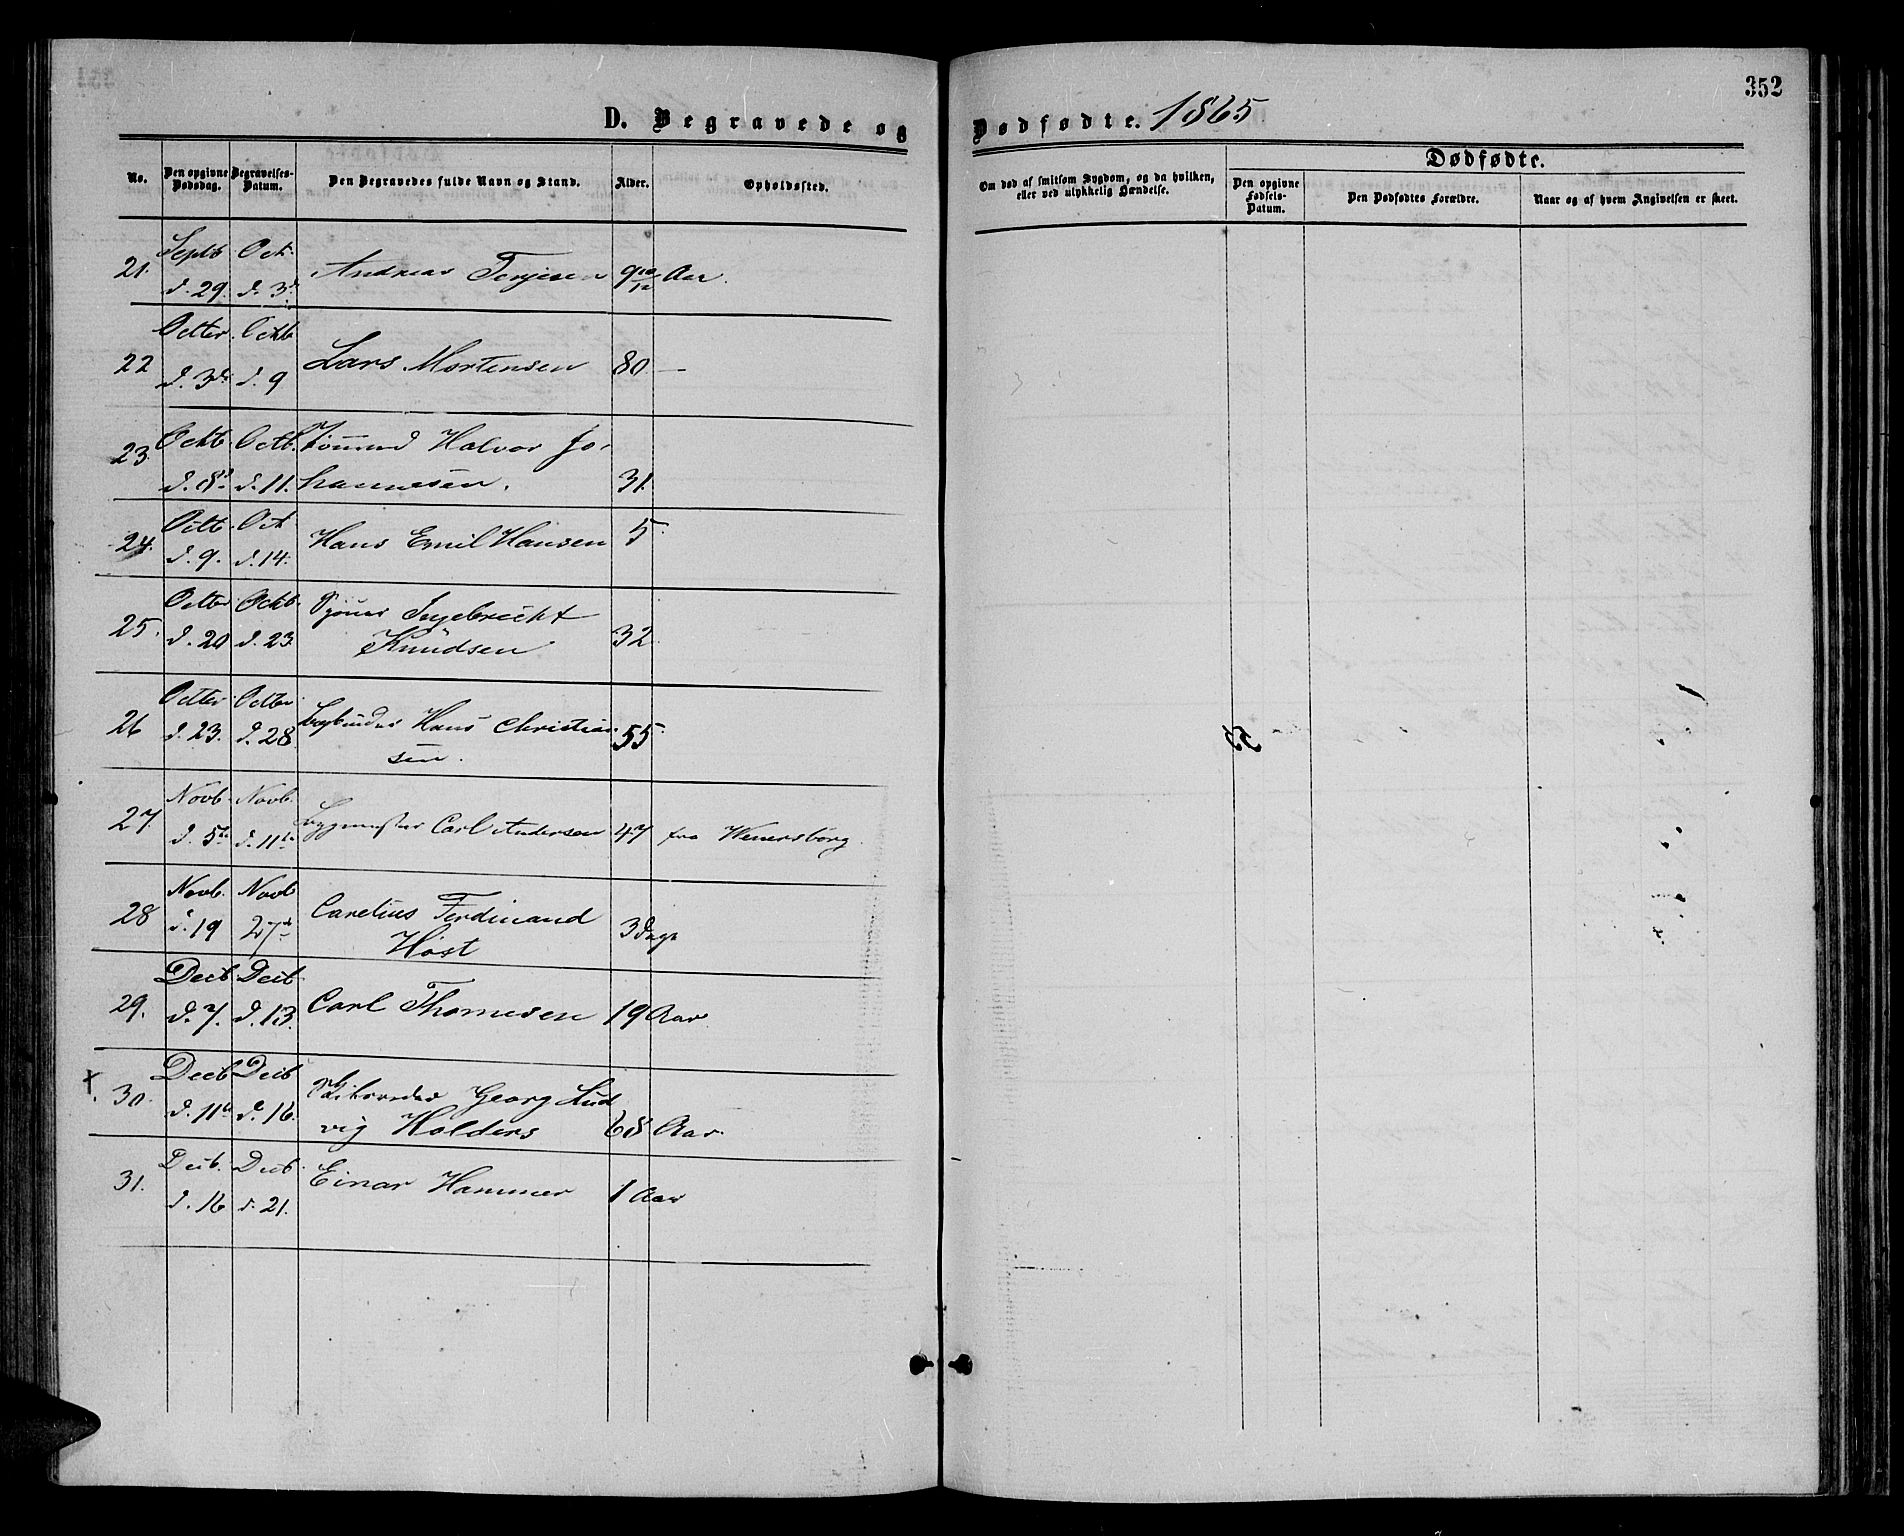 352
D. Begravede og Dødfødte. 1865
No.
Den opgivne Dødsdag.
Begravelses-Datum.
Den Begravedes fulde Navn og Stand.
Alder.
Opholdssted.
Om død af smitsom Sygdom, og da hvilken, eller ved ulykkelig Hændelse.
Dødfødte.
Den opgivne Fødsels-Datum.
Den Dødfødtes Forældre.
Naar og af hvem Angivelsen er skeet.
21. Septb d. 29. Oct. d. 3d Andreas Terjesen 9 10/12 Aar.
22 Octter d. 3d Octb d. 9 Lars Mortensen 80 —
23. Octb. d. 8d Octb. d. 11. Halvor Jo-
hannesen. 31.
24. Octb d. 9. Oct d. 14. Hans Emil Hansen 5
25. Octter d. 20 Octb. d. 23 Ingebrecht
Knudsen 32
26 Octter d. 23. Octter d. 28 Hans Christian-
sen. 55
27. Novb. d. 5te Novb. d. 11te Bygmester Carl Andersen 47 fra Wenersborg.
28 Novb. d. 19 Novb 27de Carelius Ferdinand
Høst 3 Dage
29. Decb d. 7. Decb. d. 13. Carl Thomesen 19 Aar.
x. 30. Decb d. 11te Decb d. 16. Georg Lud
vig Holders 68 Aar.
31. Decb. d. 16 Decb. d. 21. Einar Hammer 1 Aar